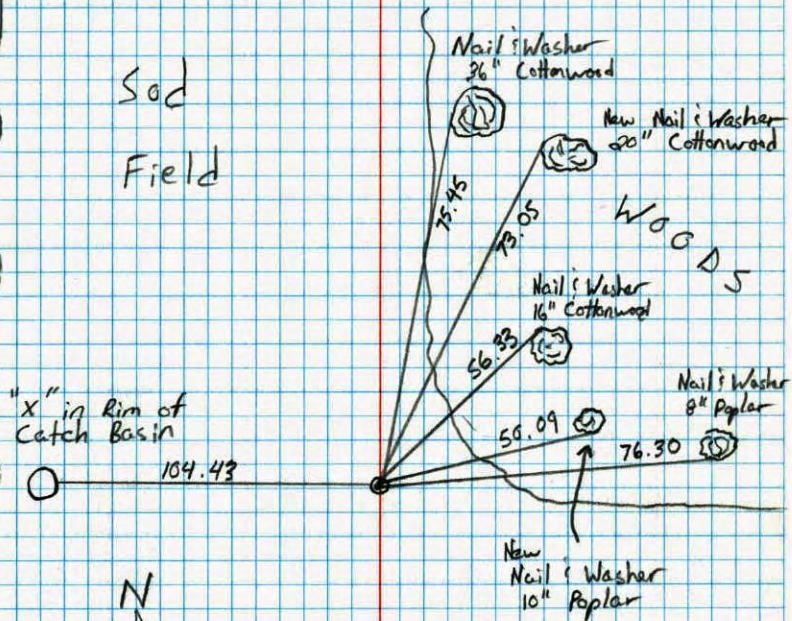 Sod
Field
Nail & Washer
36" Cottonwood
New Nail & Washer
20" Cottonwood
75.45
73.05
WOODS
Nail & Washer
16" Cottonwood
56.33
Nail & Washer
8" Poplar
"X" in Rim of
Catch Basin
50.09
76.30
104.43
New
Nail & Washer
10" Poplar
N